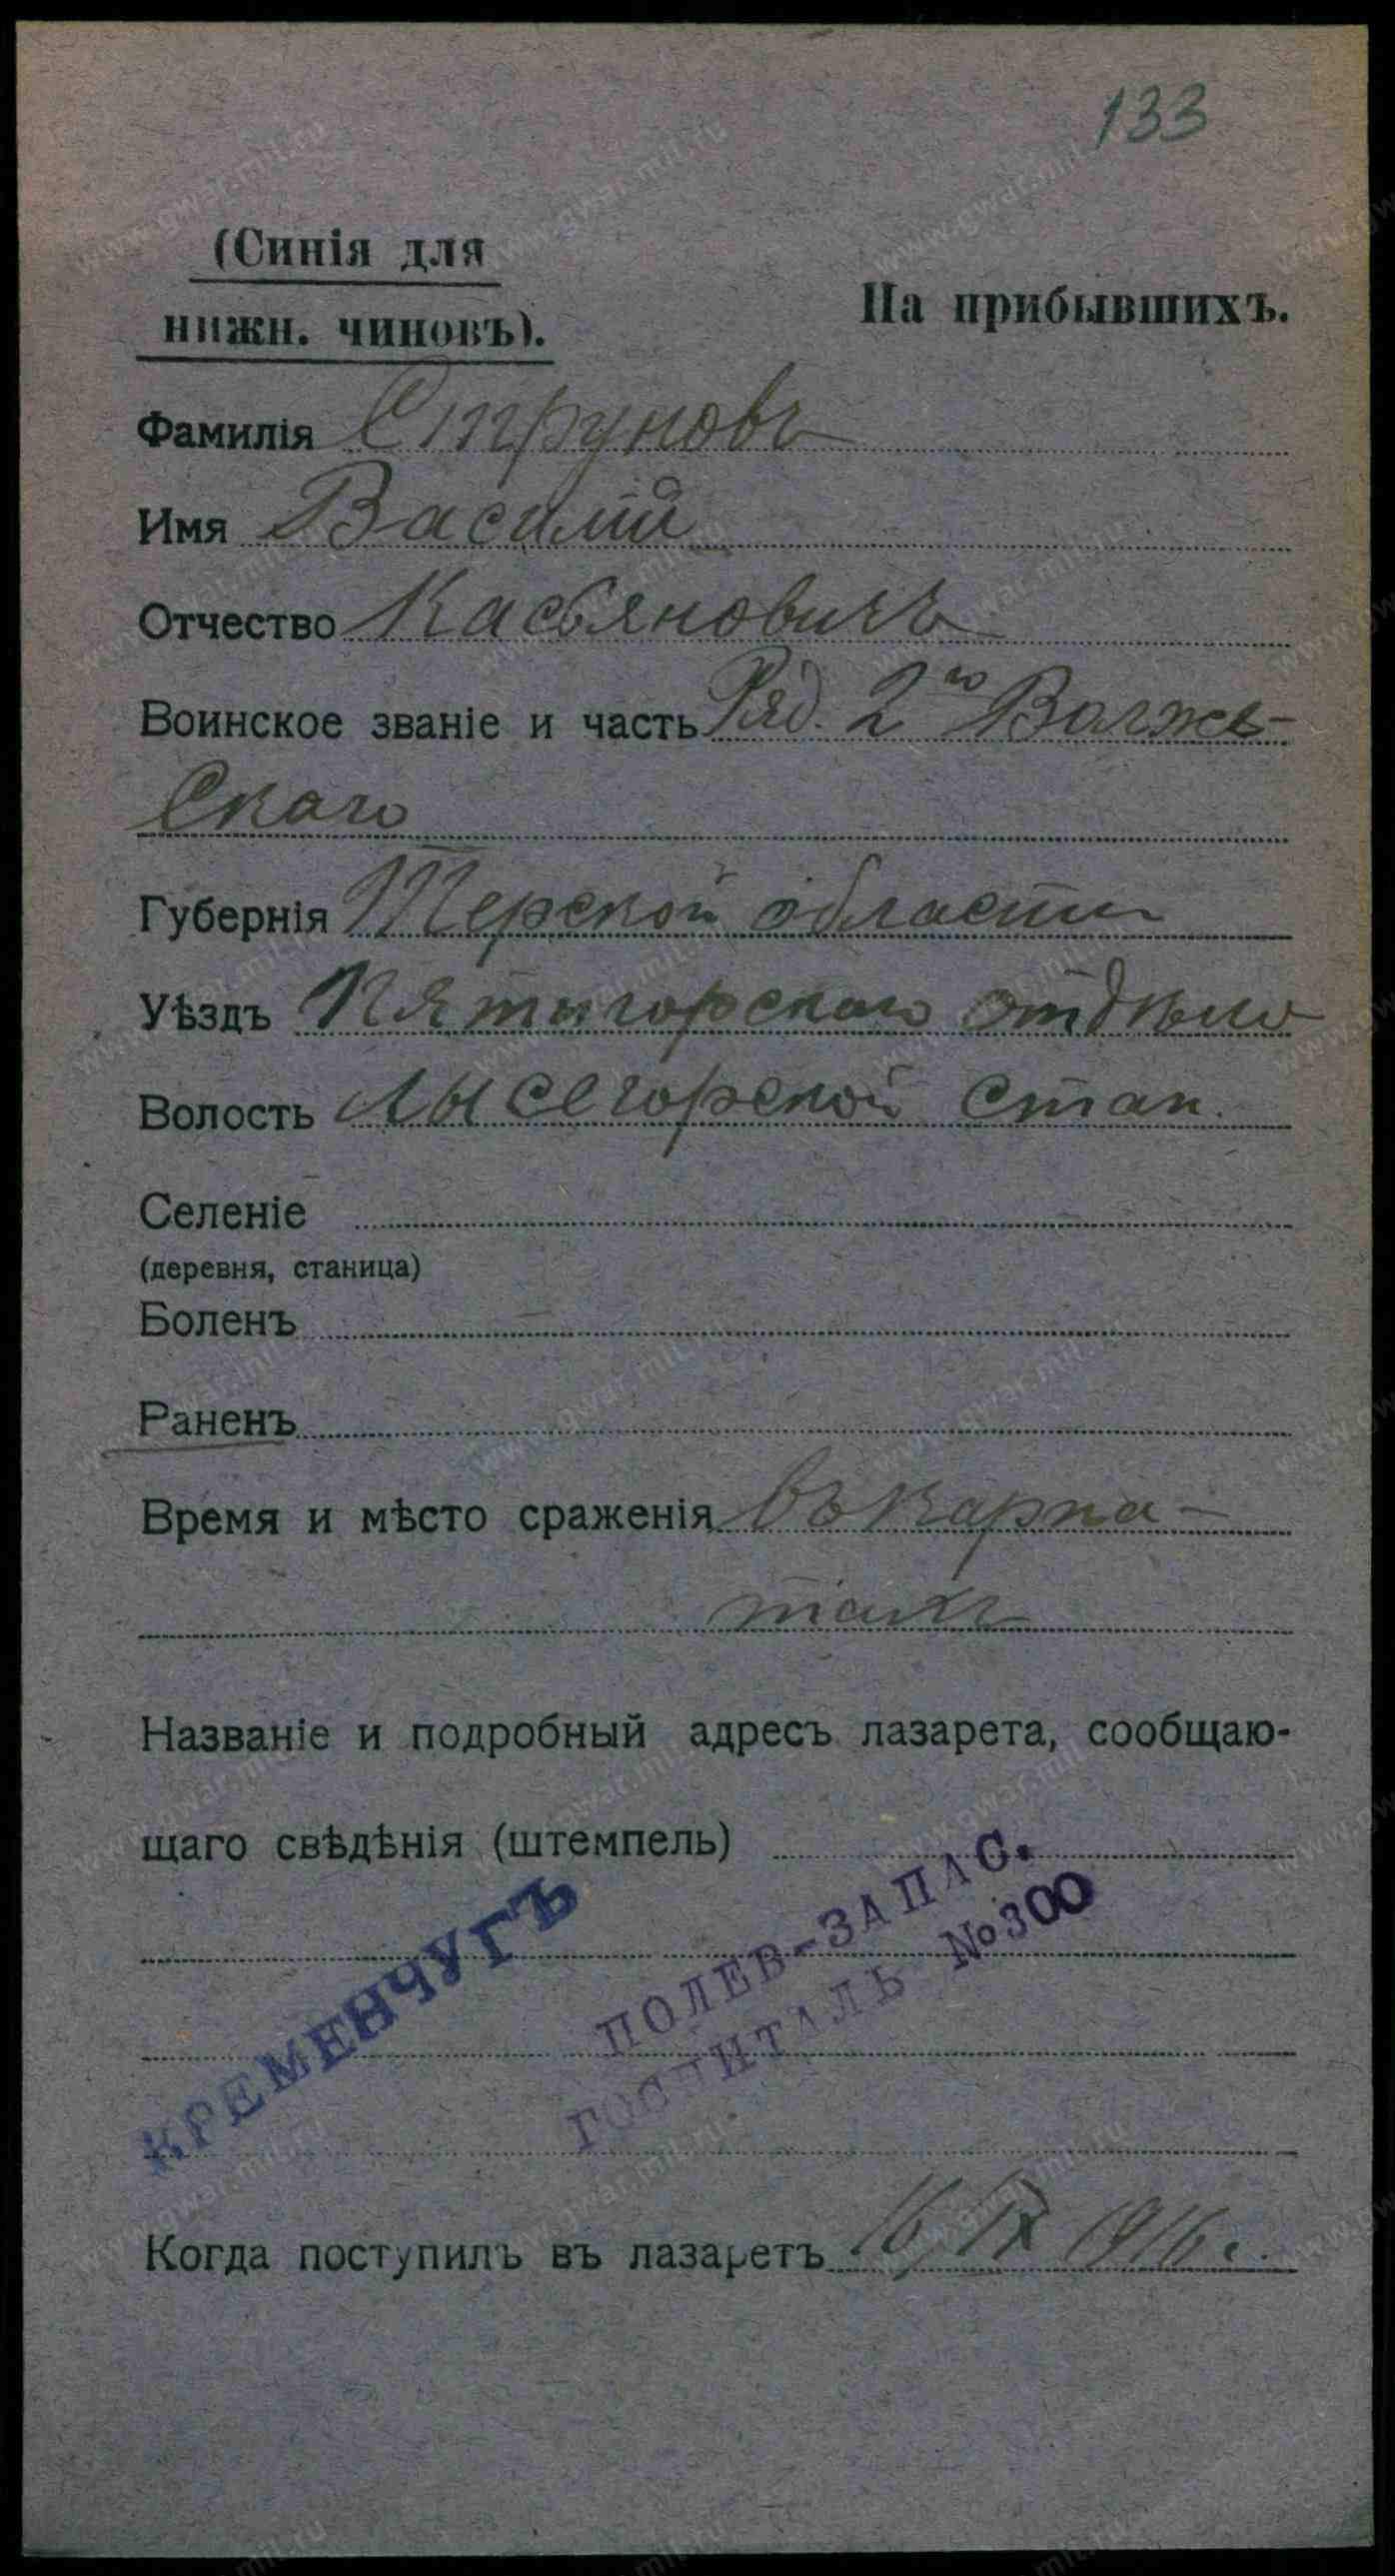 133
(Синія для
нижн. чиновъ).
На прибывшихъ.
Фамилія Струновъ
Имя Василій
Отчество Касьяновичъ
Воинское званіе и часть Ряд. 2го Волжс-
скаго
Губернія Терской области
Уѣздъ Пятигорскаго отдѣла
Волость Лысегорской стан.
Селеніе
(деревня, станица)
Боленъ
Раненъ
Время и мѣсто сраженія въ Карпа-
тахъ
Названіе и подробный адресъ лазарета, сообщаю-
щаго свѣдѣнія (штемпель)
КРЕМЕНЧУГЪ
ПОЛЕВ-ЗАПАС.
ГОСПИТАЛЬ №300
Когда поступилъ въ лазаретъ 16/IX 1916 г.
www.gwar.mil.ru